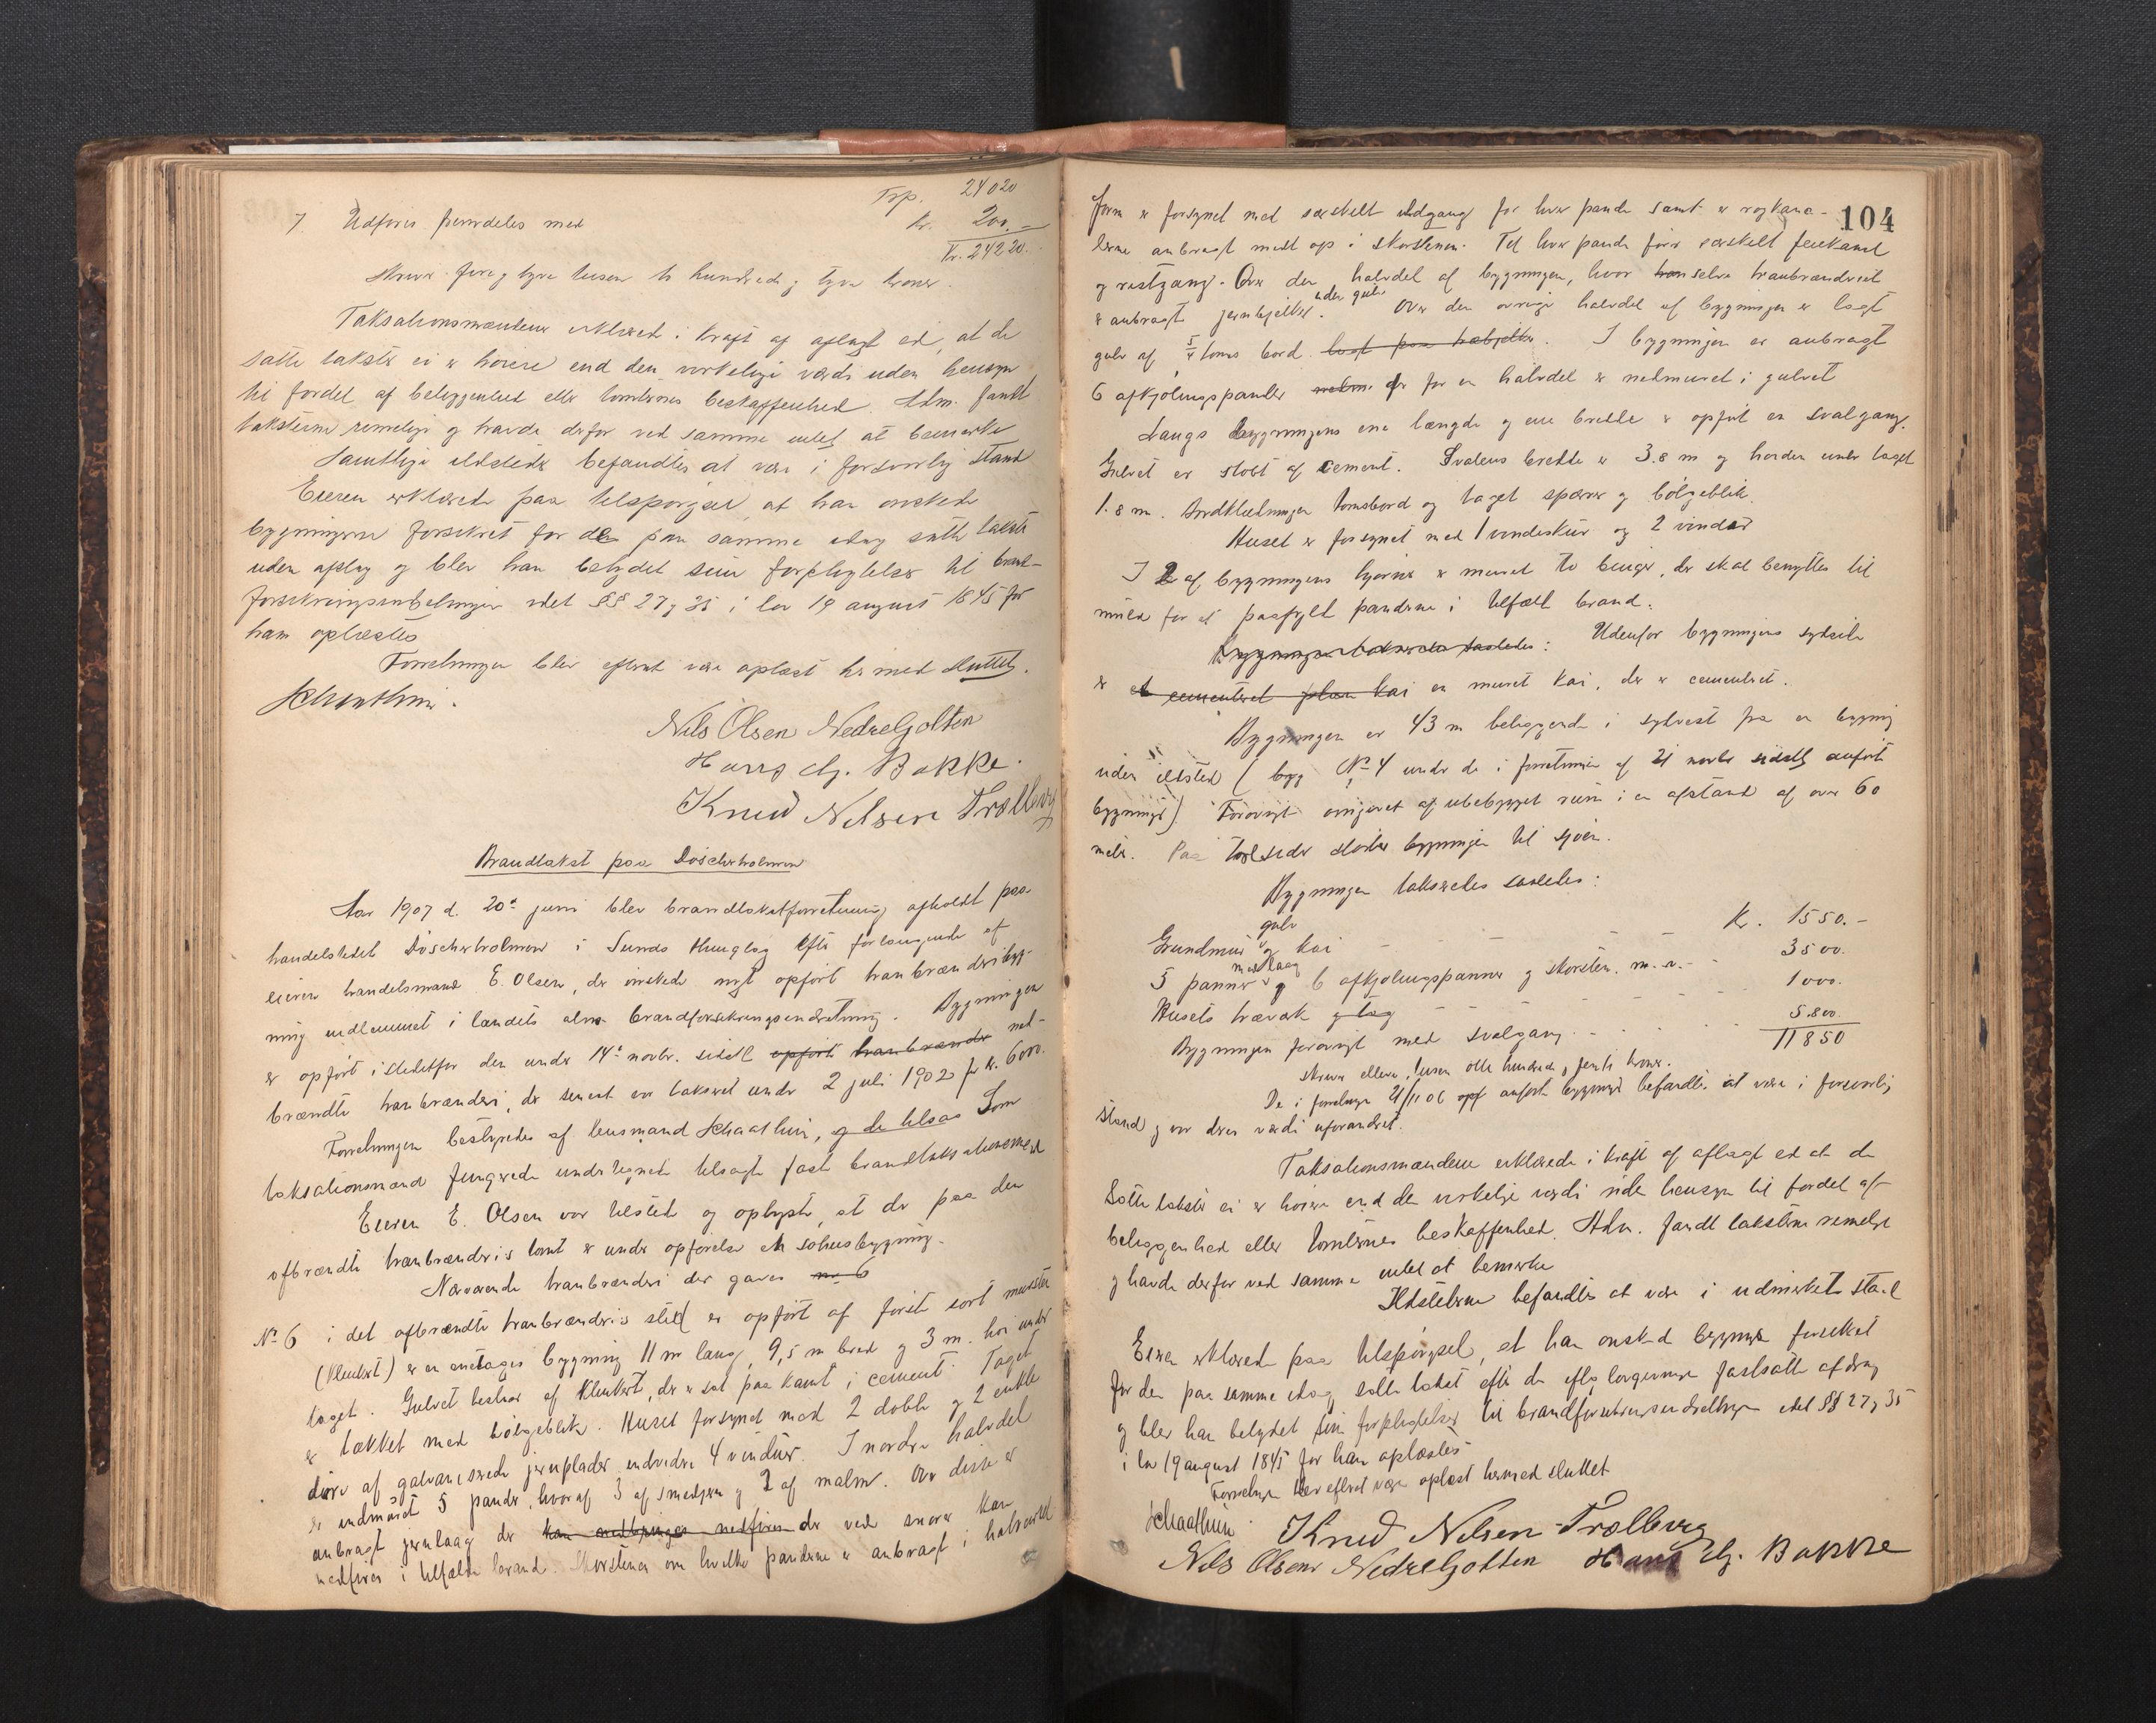 Trp. 24020
7 Udføres fremdeles med kr. 200.–
Kr. 24220.
skriver fire og tyve tusen to hundrede og tyve kroner.
Taksationsmændene erklæret i kraft af aflagt ed, at de
satte takster ei er høiere end den virkelige værdi uden hensyn
til fordel af beliggenhed eller tomternes beskaffenhed. Adm. fandt
taksterne rimelige og havde derfor ved samme intet at bemerke
Samtlige ildsteder befandtes at være i forsvarlig stand
Eieren erklærede paa tilspørgsel at han ønskede
bygningerne forsikret for de paa samme idag satte takster
uden afslag og blev han betydet sine forpligtelser til brand-
forsikringsindretningen idet §§ 27 og 35 i lov 19 august 1845 for
ham oplæstes
Forretningen blev efterat være oplæst hermed sluttet.
Schaathun.
Nils Olsen Nedregjolten
Hans Chr. Bakke.
Knud Nilsen Trælberg
Brandtakst paa Döscherholmen
Aar 1907 d. 20de juni blev brandtakstforretning afholdt paa
handelstedet Döscherholmen i Sunds thinglag efter forlangende af
eieren handelsmand E. Olsen, der ønskede nyt opført tranbrænderibyg-
ning indlemmet i landets alm. brandforsikringsindretning. Bygningen
er opført istedetfor den under 14de novbr. sidstl opført tranbrænder ned-
brændte tranbrænderi, der senest var takseret under 2 juli 1902 for kr. 6000.
Forretningen bestyredes af lensmand Schaathun, og de tilsaa Som
taksationsmænd fungerede undertegnede tilsagte faste brandtaksationsmænd
Eieren E. Olsen var tilstede og oplyste, at der paa den
afbrændte tranbrænderis tomt er under opførelse en søhusbygning.
Nærværende tranbrænderi der gaves no 6
No 6 i det afbrændte tranbrænderis sted er opført af første sort mursten
(klinkert) er en enetages bygning 11 m lang, 9,5 m bred og 3 m. høi under
taget. Gulvet bestaar af klinkert, der er sat paa kant i cement. Taget
er tækket med bølgeblik. Huset forsynet med 2 doble og 2 enkle
døre af galvaniserede jernplader endvidre 4 vinduer. I nordre halvdel
er indmuret 5 pander, hvoraf 3 af smedjern og 2 af malm. Over disse er
anbragt jernlaag der kan nedbringes nedfires der ved snorer kan
nedfires i tilfælde brand. Skorstenen om hvilke panderne er anbragt i halvcirkel
104
form er forsynet med særskilt ildgang for hver pande samt er røgkana-
lerne anbragt midt op i skorstenen. Til hver pande fører særskilt feiekanal
og røstgang. Over den halvdel af bygningen, hvor tran selve tranbrænderiet
er anbragt jernbjelker under gulv. Over den øvrige halvdel af bygningen er lagt
gulv af 5/4 toms bord lagt paa træbjelker. I bygningen er anbragt
6 afkjølingspander nedm. der for en halvdel er nedmuret i gulvet
Langs bygningens ene længde og ene bredde er opført en svalgang.
Gulvet er støbt af cement. Svalens bredde er 3.8 m og høiden under taget
1.8 m. Bordklædningen tomsbord og taget spærer og bølgeblik.
Huset er forsynet med 1 vindeskur og 2 vinder
I 2 af bygningens hjørner er muret to binger, der skal benyttes til
muld for at paafylde panderne i tilfælde brand.
Bygningen takseredes saaledes: Udenfor bygningens sydside
er et cementeret plan kai en muret kai, der er cementeret.
Bygningen er 43 m beliggende i sydvest fra en bygning
uden ildsted (byg No 4 under de i forretningen af 21 novbr sidstl anførte
bygninger). Forøvrigt omgivet af ubebygget rum i en afstand af over 60
meter. Paa to sider støder bygningen til sjøen.
Bygningen takseredes saaledes:
Grundmur gulv og kai – – – – – Kr. 1550.–
5 panner med laag og 6 afkjølingspanner og skorsten. m.v. – 3500.
Husets træværk og tag – – – – – – 1000.
Bygningen forøvrigt med svalgang – – – – – 5.800.
11850
skriver elleve tusen otte hundrede og femti kroner.
De i forretningen 21/11 06 opf anførte bygninger befandtes at være i forsvarlig
stand og var deres værdi uforandret.
Taksationsmændene erklærede i kraft af aflagt ed at de
satte takster ei er høiere end den virkelige værdi uden hensyn til fordel af
beliggenhed eller tomternes beskaffenhed. Adm. fandt taksterne rimelige
og havde derfor ved samme intet at bemerke
Ildstederne befandtes at være i udmerket stand
Eieren erklærede paa tilspørgsel, at han ønsked bygningen forsikret
for den paa samme idag satte takst efter de efter lovgivningen fastsatte afdrag
og blev han betydet sine forpligtelser til brandforsikringsindretningen idet §§ 27 og 35
i lov 19 august 1845 for ham oplæstes
Forretningen blev efterat være oplæst hermed sluttet
Schaathun. Knud Nilsen Trælberg
Nils Olsen Nedregjolten Hans Chr. Bakke